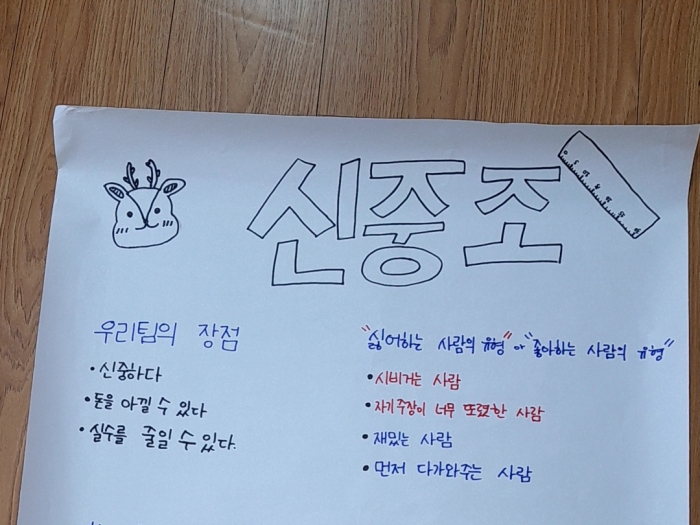 신중조
우리팀의 장점
• 신중하다
• 돈을 아낄 수 있다
• 실수를 줄일 수 있다.
"싫어하는 사람의 유형" or "좋아하는 사람의 유형"
• 시비거는 사람
• 자기주장이 너무 또렷한 사람
• 재밌는 사람
• 먼저 다가와주는 사람